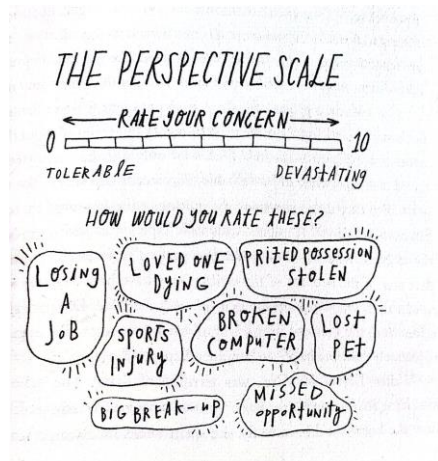 THE PERSPECTIVE SCALE
RATE YOUR CONCERN
0 10
TOLERABLE DEVASTATING
HOW WOULD YOU RATE THESE?
LOSING
A
JOB
LOVED ONE
DYING
PRIZED POSSESSION
STOLEN
SPORTS
INJURY
BROKEN
COMPUTER
LOST
PET
BIG BREAK-UP
MISSED
opportunity